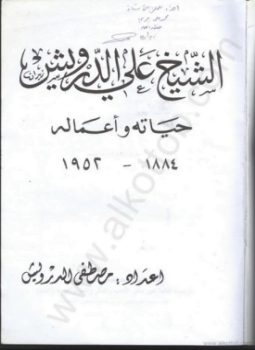 الشيخ علي الدرويش
حياته وأعماله
١٨٨٤ - ١٩٥٢
اعداد : مصطفى الدرويش
www.alkottob.com